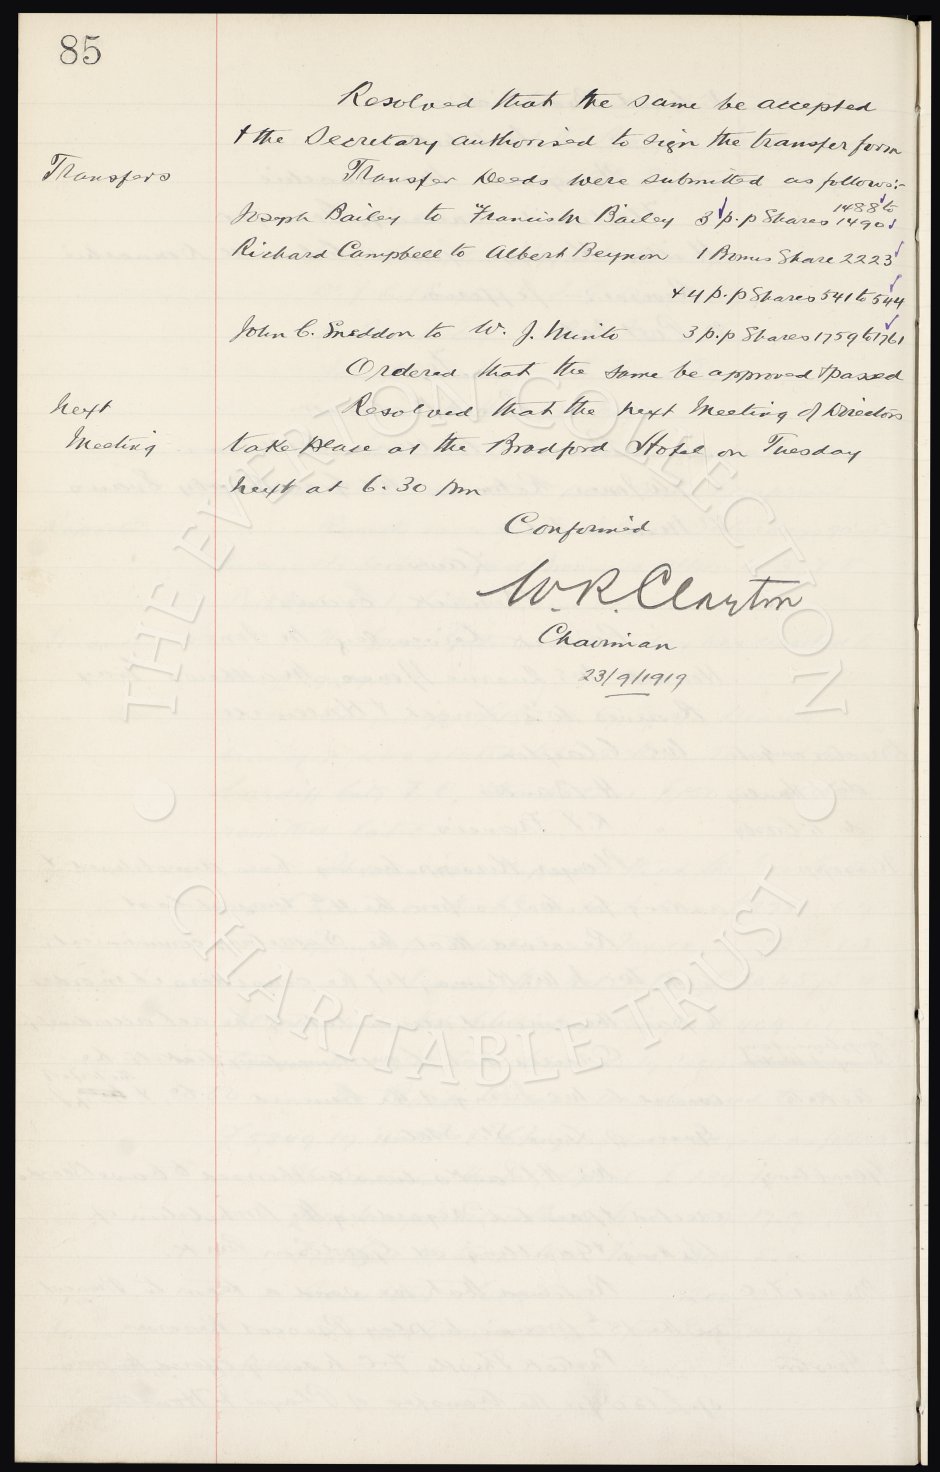 85
Resolved that the same be accepted
+ the Secretary authorised to sign the transfer form
Transfers
Transfer Deeds were submitted as follows:-
Joseph Bailey to Francis M Bailey 3 p.p Shares 1488 to 1490
Richard Campbell to Albert Beynon 1 Bonus Share 2223
+ 4 p.p Shares 541 to 544
John C. Sneddon to W. J. Minto 3 p.p Shares 1759 to 1761
Ordered that the same be approved + passed
Next
Meeting
Resolved that the next Meeting of Directors
take place at the Bradford Hotel on Tuesday
next at 6.30 pm
Confirmed
W. R. Clayton
Chairman
23/9/1919
THE EVERTON COLLECTION
CHARITABLE TRUST